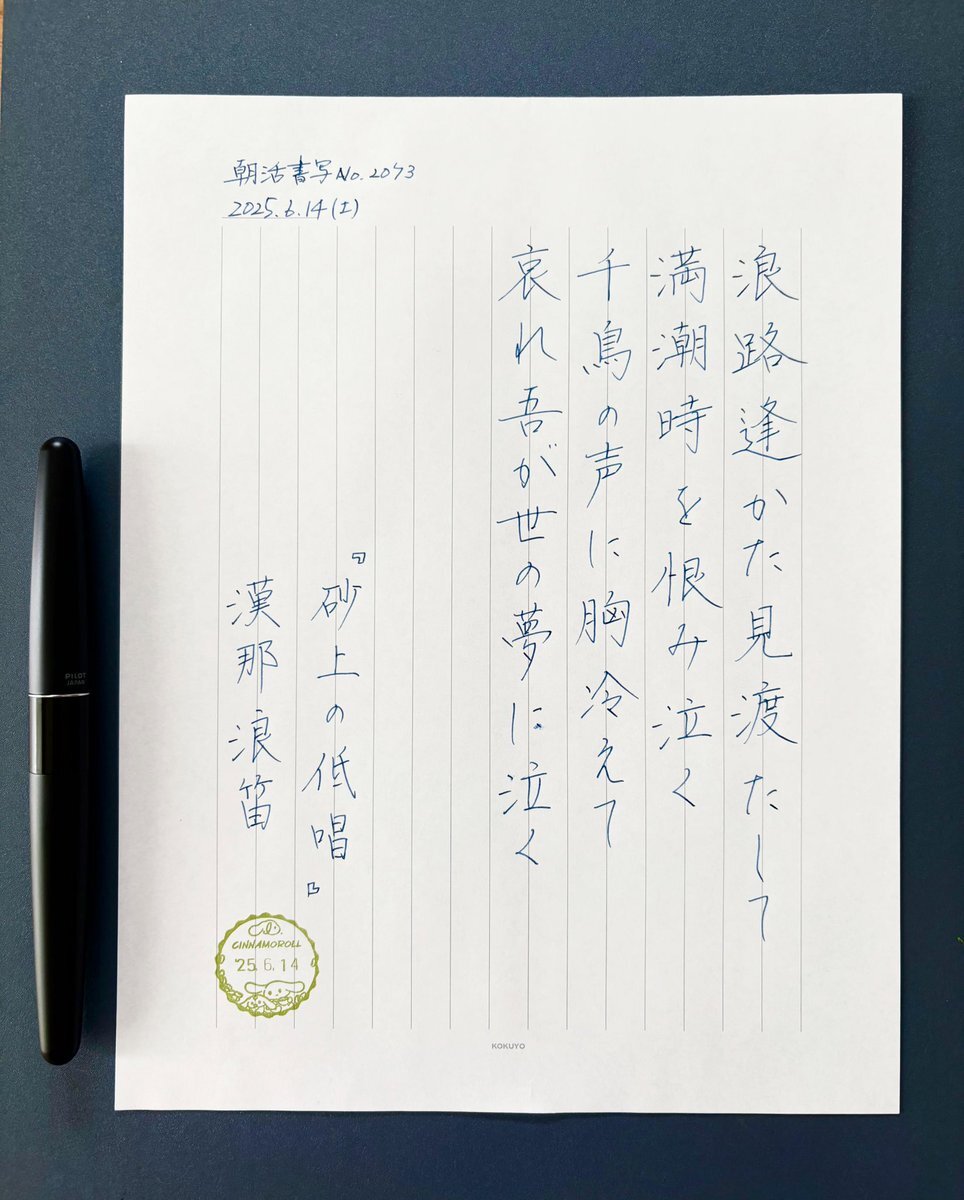 朝活書写No.2073
2025.6.14(土)
浪路逢かた見渡たして
満潮時を恨み泣く
千鳥の声に胸冷えて
哀れ吾が世の夢に泣く
『砂上の低唱』
漢那浪笛
CINNAMOROLL
'25.6.14
KOKUYO
PILOT
JAPAN